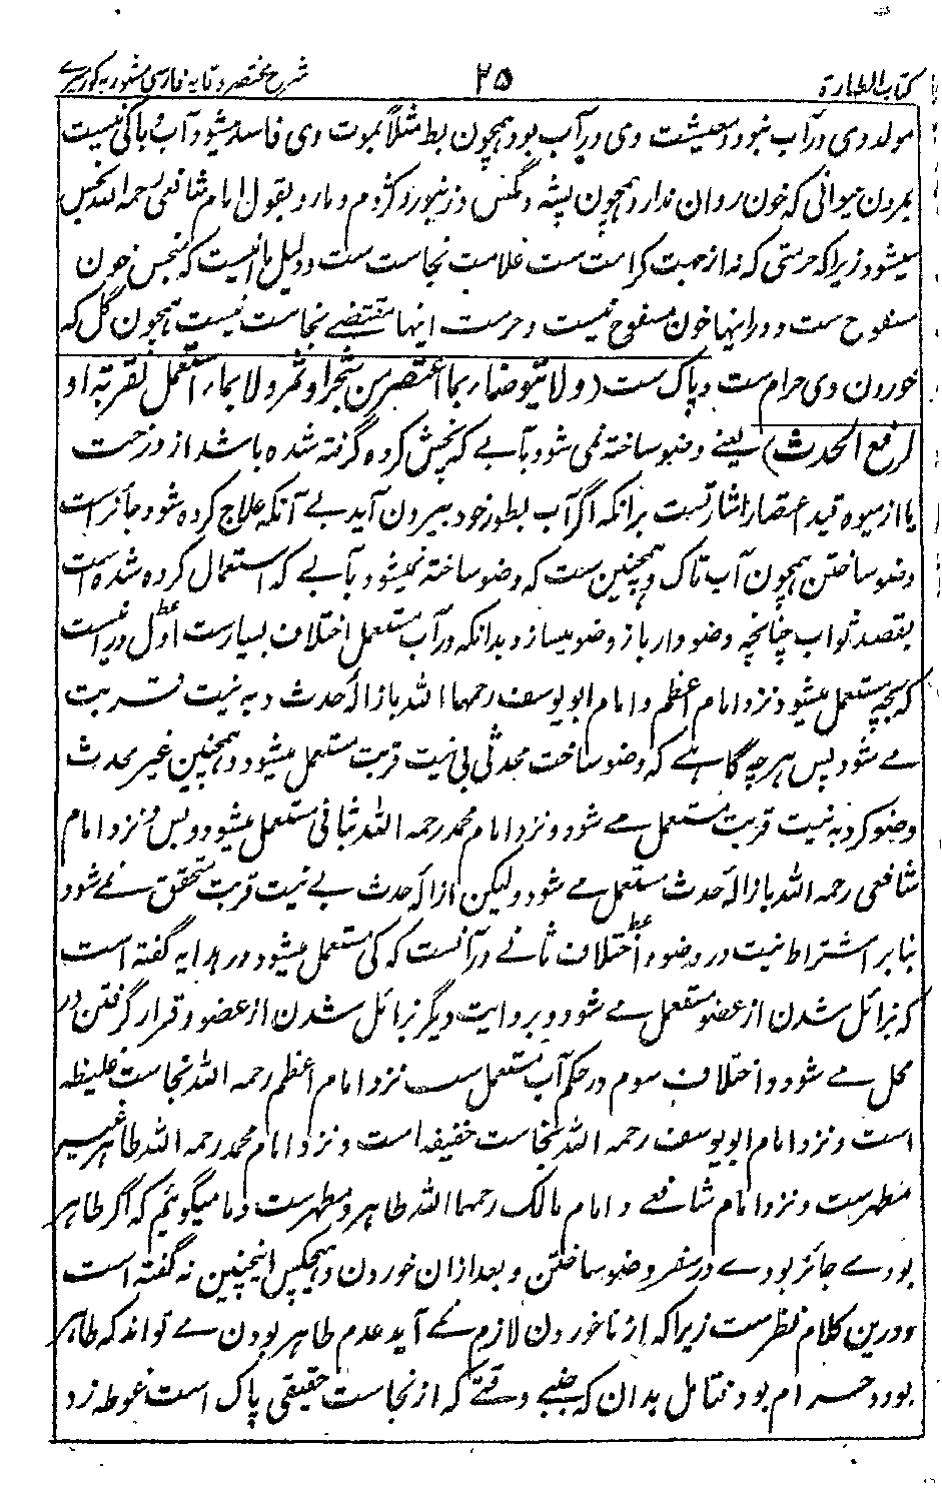 کتاب الطهارة ۲۵ شرح مختصر وقایه فارسی مشهور به کور میرے
مولد وی در آب نبود و معیشت وی در آب بود همچون بط مثلاً بموت وی فاسد میشود آب و باکی نیست
بمردن حیوانی که خون روان ندارد همچون پشه و مگس و زنبور و کژدم و مار و بقول امام شافعی رحمه الله نجس
میشود زیرا که حرمتی که نه از جهت کرامت ست علامت نجاست ست و دلیل ما انیست که نجس خون
مسفوح ست و در اینها خون مسفوح نیست و حرمت اینها مقتضے نجاست نیست همچون گل که
خوردن وی حرام ست و پاک ست (ولا یتوضاء بما اعتصر من شجر او ثمر ولا بماء استعمل لقربة او
لرفع الحدث) یعنے وضو ساخته نمی شود بآبے که پخش کرده گرفته شده باشد از درخت
یا از میوه قید اعتصار اشارتست برانکه اگر آب بطور خود بیرون آید بے آنکه علاج کرده شود جائز است
وضو ساختن همچون آب تاک و همچنین ست که وضو ساخته نمیشود بآبے که استعمال کرده شده است
بقصد ثواب چنانچه وضودار باز وضو میسازد بدانکه در آب مستعمل اختلاف بسیارست اول در انیست
که بچه مستعمل میشود نزد امام اعظم و امام ابو یوسف رحمهما الله بازالهٔ حدث و به نیت قربت
مے شود پس هرچه گاہے که وضو ساخت محدثی بی نیت قربت مستعمل میشود و همچنین غیر محدث
وضو کرد به نیت قربت مستعمل مے شود و نزد امام محمد رحمه الله بثانی مستعمل میشود و بس و نزد امام
شافعی رحمه الله بازالهٔ حدث مستعمل مے شود و لیکن ازالهٔ حدث بے نیت قربت متحقق نمے شود
بنابر اشتراط نیت در وضو و اختلاف ثانے در آنست که کی مستعمل میشود در هدایه گفته است
که بزائل شدن از عضو مستعمل مے شود و بروایت دیگر بزائل شدن از عضو و قرار گرفتن در
محل مے شود و اختلاف سوم در حکم آب مستعمل ست نزد امام اعظم رحمه الله نجاست غلیظه
است و نزد امام ابو یوسف رحمه الله نجاست خفیفه است و نزد امام محمد رحمه الله طاهر غیر
مطهرست و نزد امام شافعے و امام مالک رحمهما الله طاهر و مطهرست و ما میگوئیم که اگر طاهر
بودے جائز بودے در سفر وضو ساختن و بعد ازان خوردن و هیچکس اینچنین نه گفته است
و درین کلام نظرست زیرا که از ناخوردن لازم نمے آید عدم طاهر بودن مے تواند که طاهر
بود و حرام بود فتامل بدان که جنبے وقتے که از نجاست حقیقی پاک است غوطه زد